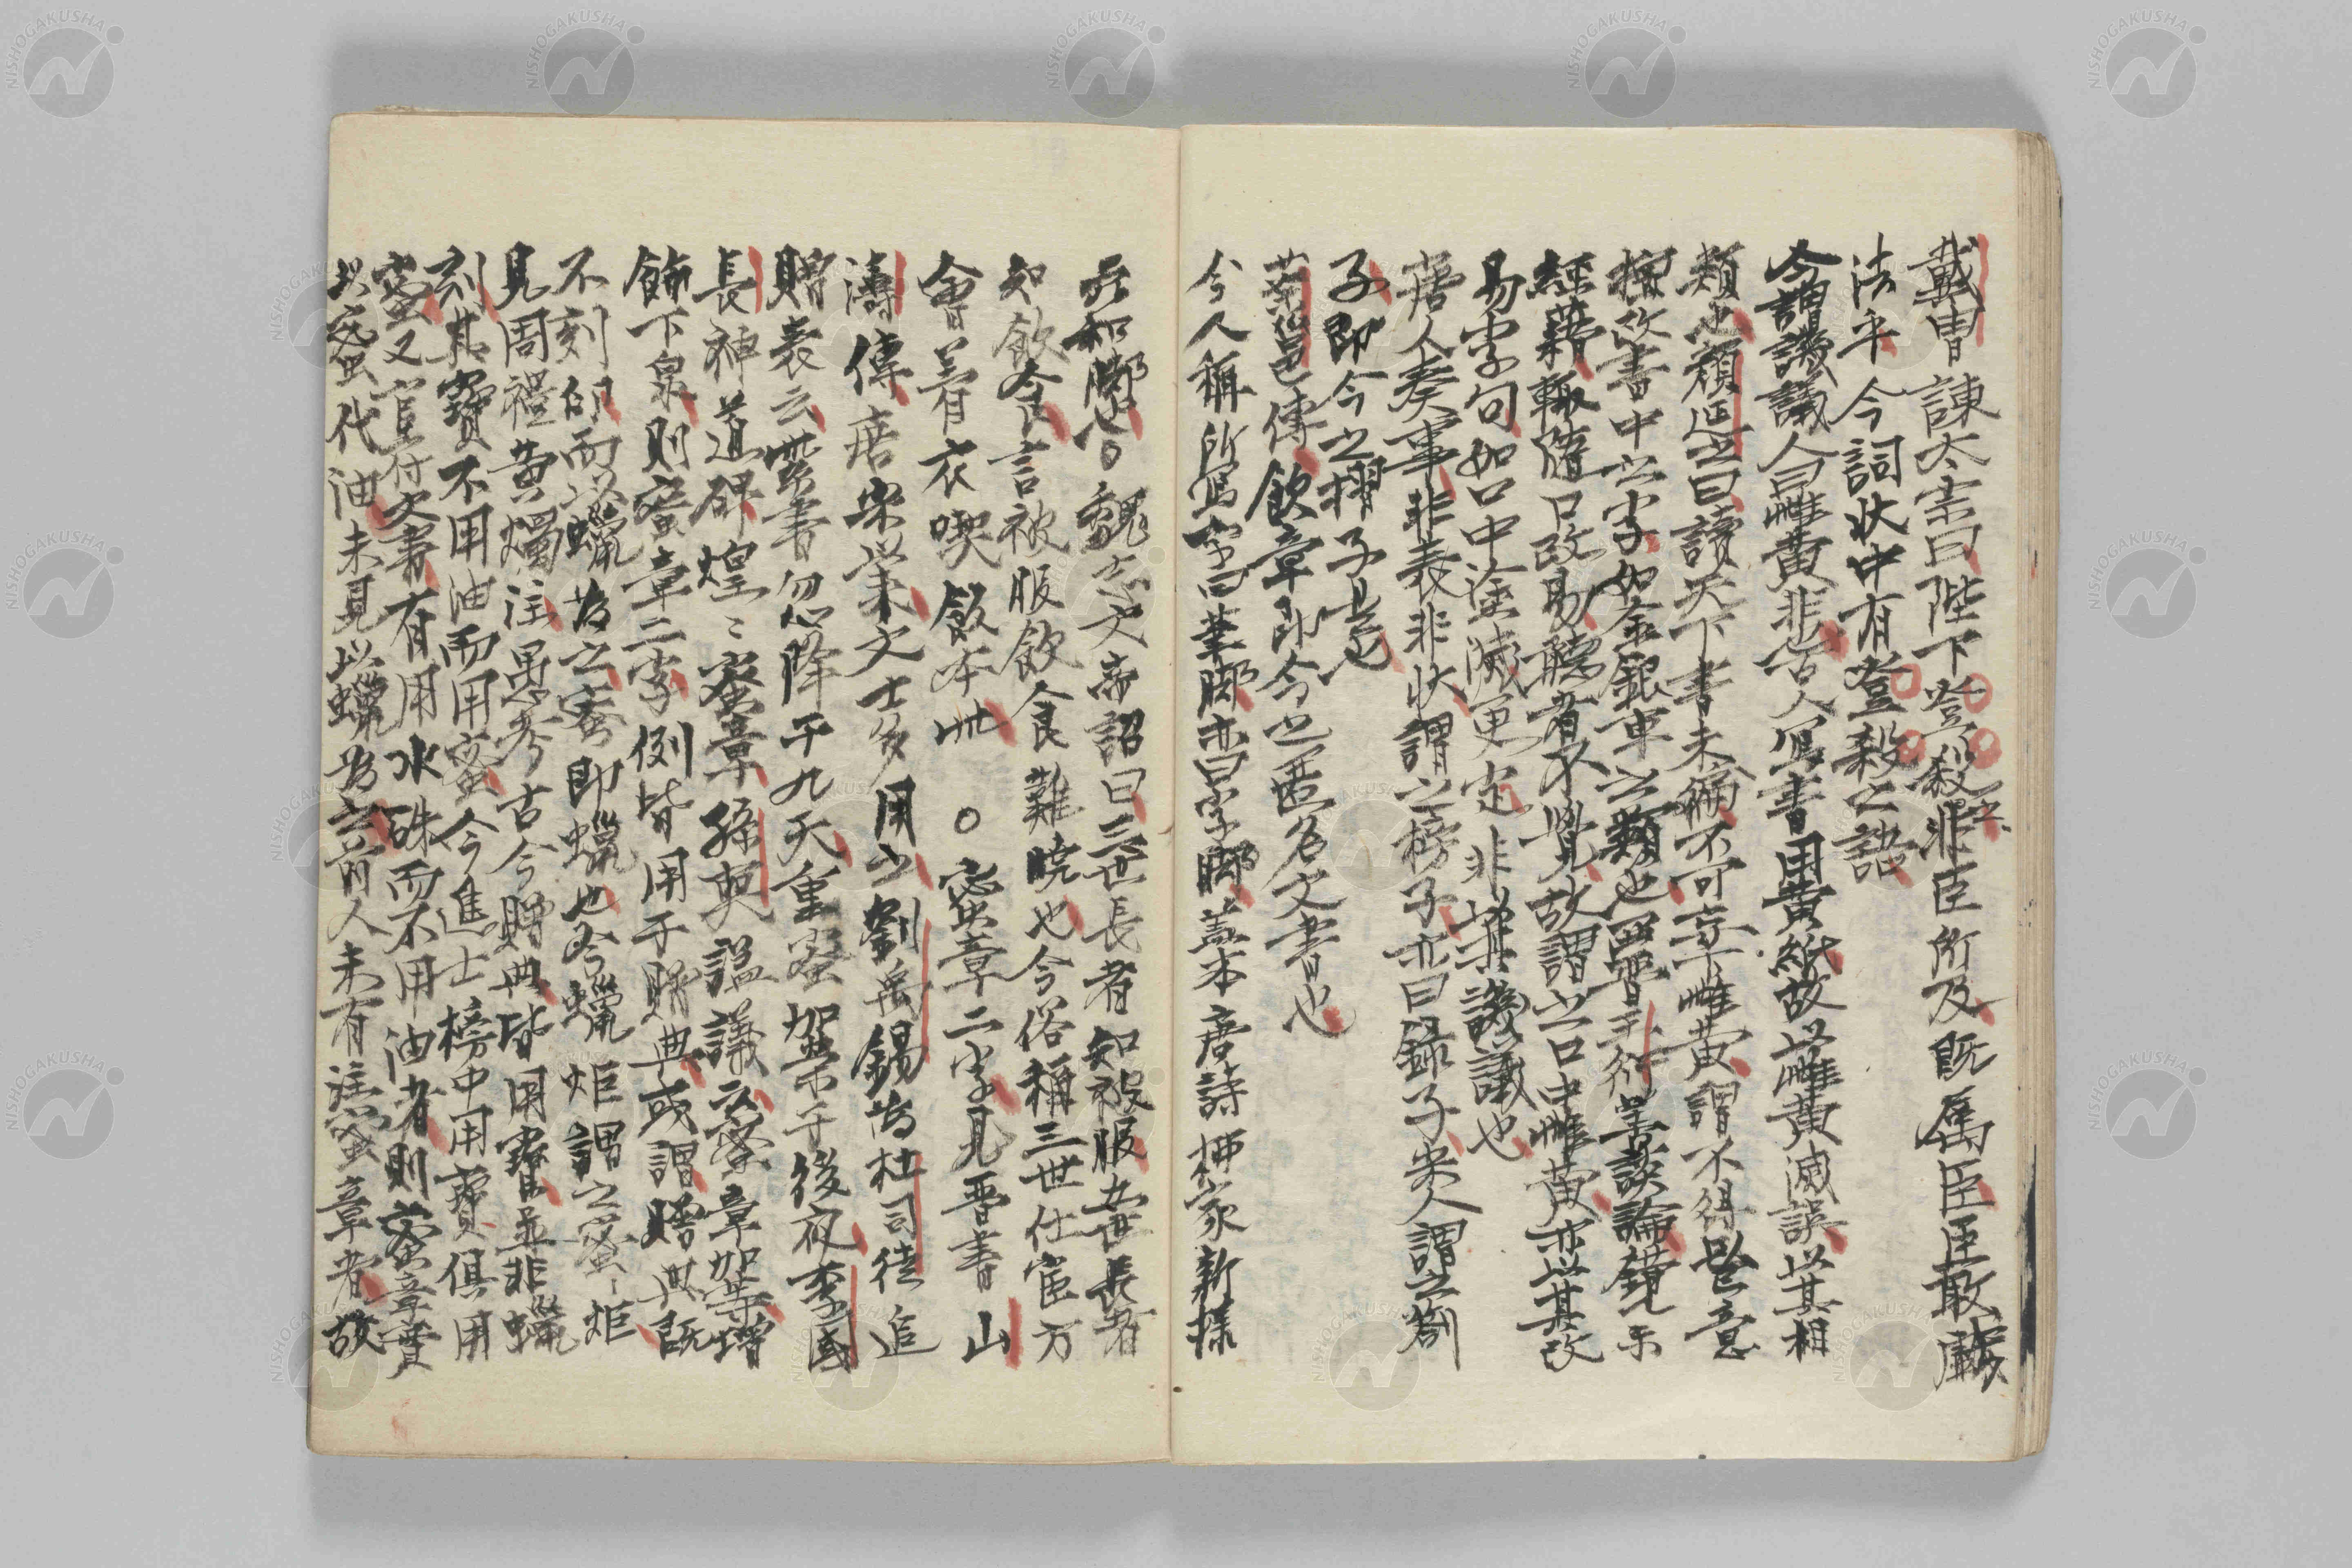 戴冑諫太宗曰陛下登殺非臣所及既属臣臣敢虧
法乎今詞状中有登殺之語
今謂譏議人曰雌黄非也古人寫書用黄紙故以雌黄滅誤以其相
類也顔延之曰讀天下書未徧不可妄下雌黄謂不得以己意
擅改書中之字如金銀車之類也西晋王衍善談論鏡示
經藉輒隨口改易聽者不覺故謂之口中雌黄亦以其改
易字句如口中塗滅更定非以其譏議也
唐人奏事非表非状謂之榜子亦曰録子宋人謂之劄
子即今之摺子是也
蔡邕傳飲章即今之匿名文書也
今人稱所寫字曰筆脚亦曰字脚蓋本唐詩柳家新様
元和脚也○魏志文帝詔曰三世長者知被服五世長者
知飲食言被服飲食難曉也今俗稱三世仕宦方
會著衣喫飯本此 ○密章二字見晋書山
濤傳唐宋以来文士多用之劉禹錫為杜司徒追
贈表云紫書忽降于九天重密加榮于後夜李國
長神道碑煌々密章孫奭謚議云密章加等増
飾下泉則密章二字例皆用于贈典或謂贈典既
不刻印而以蠟為之蜜即蠟也今蠟炬謂之蜜炬
見周禮黄燭注愚考古今贈典皆用寶並非蠟
刻其寶不用油而用蜜今進士榜中用寶俱用
蜜又宣付文書有用水硃而不用油者則蜜章寶
以蜜代油未見以蠟為之前人未有注蜜章者故
NISHOGAKUSHA